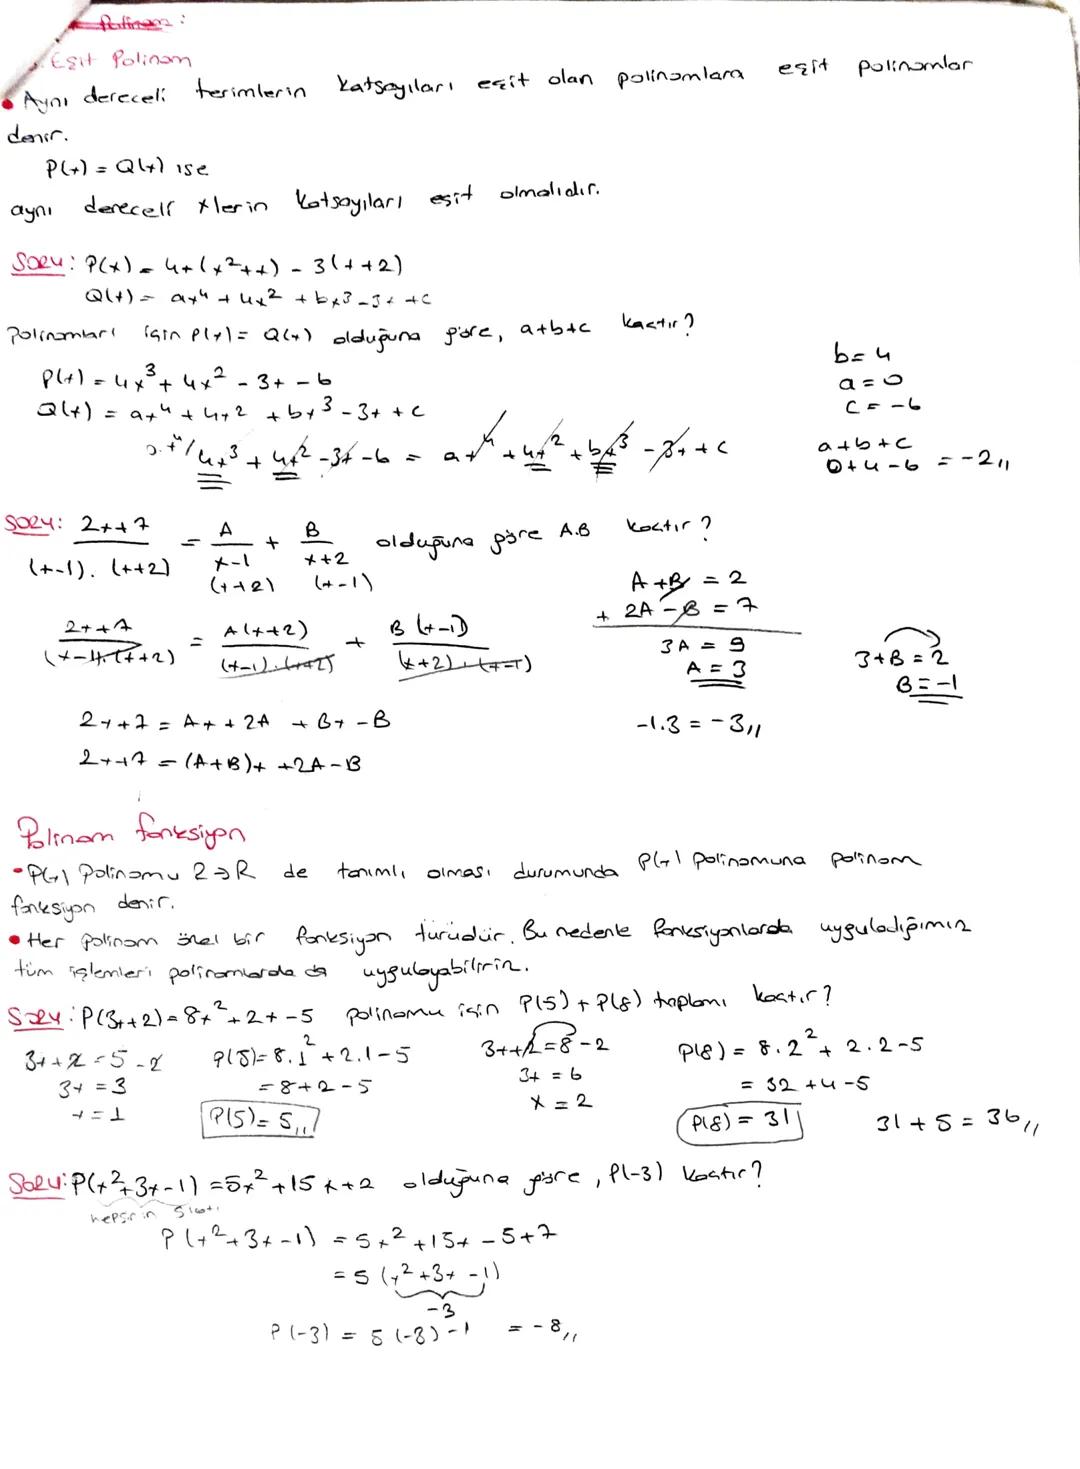 Polinom:
Eşit Polinom
• Aynı dereceli terimlerin katsayıları eşit olan polinomlara eşit polinomlar
denir.
P(x) = Q(x) ise
aynı dereceli xlerin katsayıları eşit olmalıdır.
Soru: P(x) = 4x(x²+x) - 3(x+2)
Q(x) = ax⁴ + 4x² + bx³ - 3x + c
Polinomları için P(x) = Q(x) olduğuna göre, a+b+c kaçtır?
P(x) = 4x³ + 4x² - 3x - 6
Q(x) = ax⁴ + 4x² + bx³ - 3x + c
0.x⁴/4x³ + 4x² - 3x - 6 = ax⁴ + 4x² + bx³ - 3x + c
b = 4
a = 0
c = -6
a+b+c
0+4-6 = -2,,
Soru: 2x+7 / (x-1).(x+2) = A / x-1 + B / x+2 olduğuna göre A.B kaçtır?
(x+2) (x-1)
2x+7 / (x-1).(x+2) = A(x+2) / (x-1).(x+2) + B(x-1) / (x+2).(x-1)
2x+7 = Ax + 2A + Bx - B
2x+7 = (A+B)x + 2A - B
A + B = 2
+ 2A - B = 7
3A = 9
A = 3
3+B = 2
B = -1
-1.3 = -3,,
Polinom fonksiyon
• P(x) Polinomu R→R de tanımlı olması durumunda P(x) polinomuna polinom
fonksiyon denir.
• Her polinom özel bir fonksiyon türüdür. Bu nedenle fonksiyonlarda uyguladığımız
tüm işlemleri polinomlarda da uygulayabiliriz.
Soru: P(3x+2) = 8x² + 2x - 5 polinomu için P(5) + P(8) toplamı kaçtır?
3x+2 = 5 - 2
3x = 3
x = 1
P(5) = 8.1² + 2.1 - 5
= 8 + 2 - 5
P(5) = 5,,
3x+2 = 8 - 2
3x = 6
x = 2
P(8) = 8.2² + 2.2 - 5
= 32 + 4 - 5
P(8) = 31
31 + 5 = 36,,
Soru: P(x²+3x-1) = 5x² + 15x + 2 olduğuna göre, P(-3) kaçtır?
hepsinin
P(x²+3x-1) = 5x² + 15x - 5 + 7
= 5(x²+3x-1)
-3
P(-3) = 5(-3) - 1 = -8,,